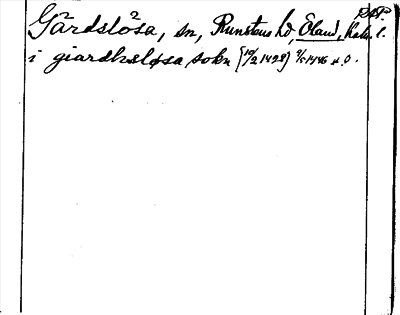 RAP.
Gärdslösa, sn, Runstens hd, Öland, Kalm. l.
i giardhsløsa sokn (10/2 1428) 2/5 1446 o.